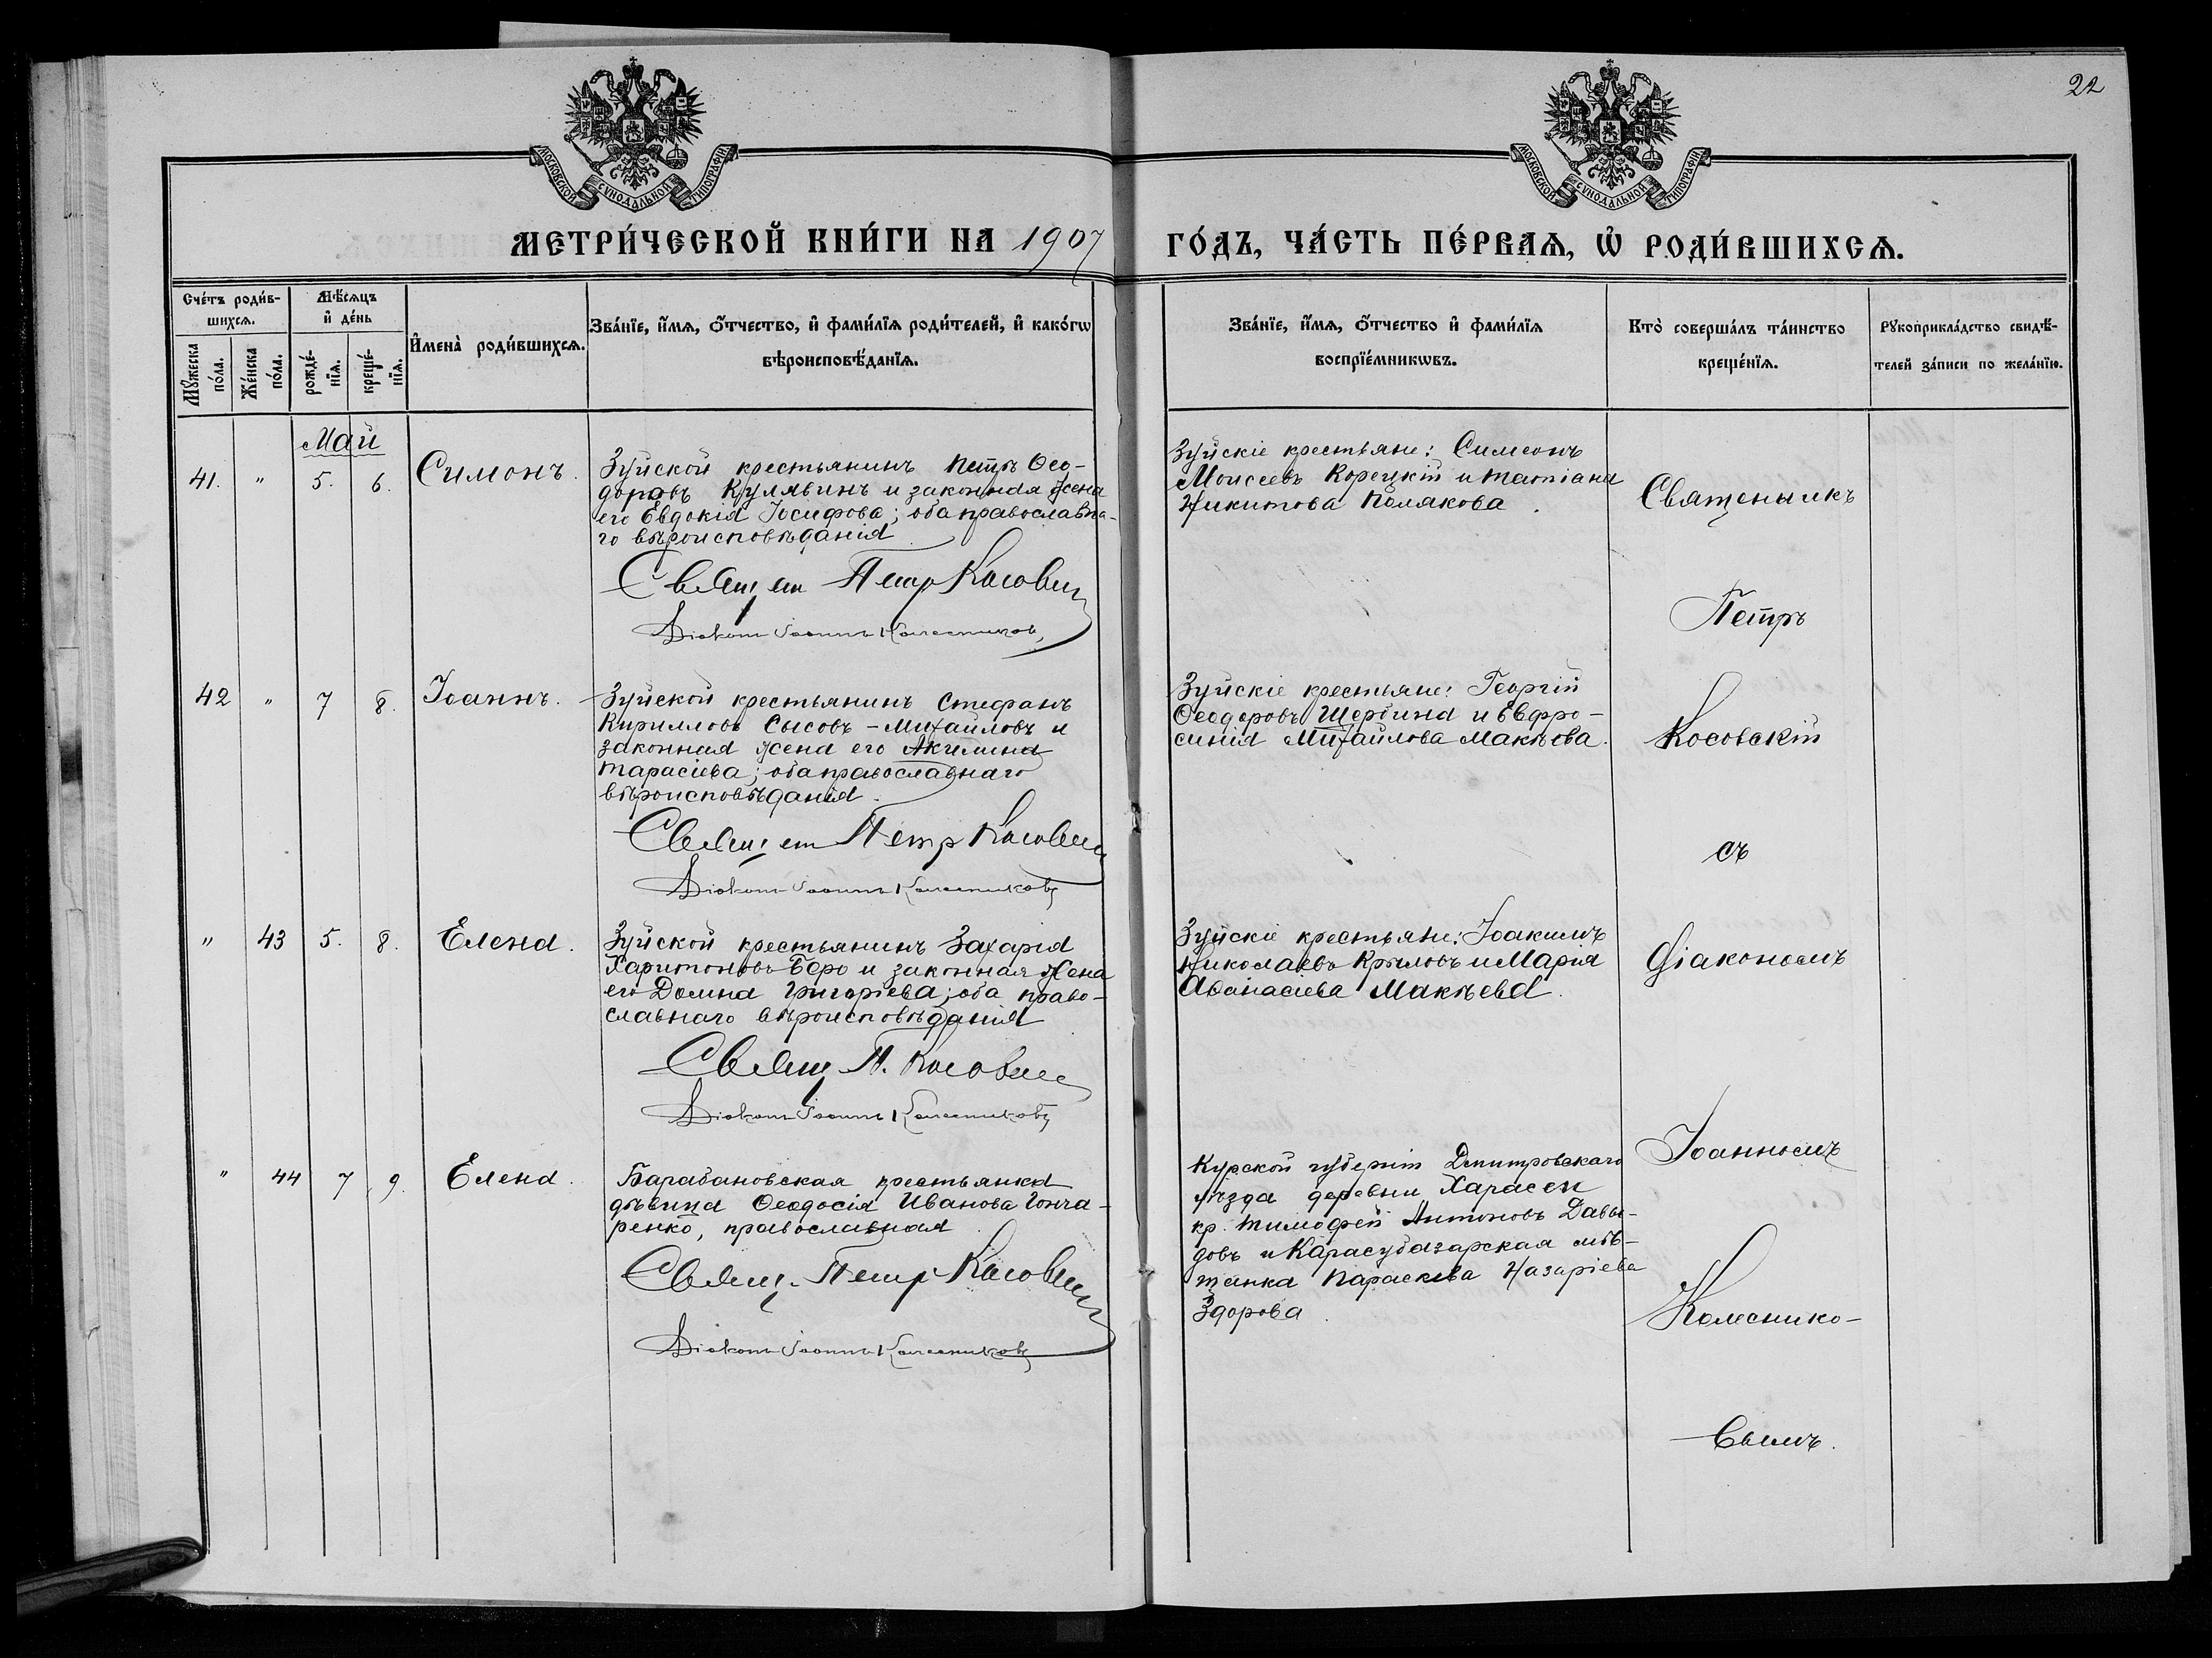 22
МОСКОВСКОЙ СУНОДАЛЬНОЙ ТИПОГРАФІИ
МОСКОВСКОЙ СУНОДАЛЬНОЙ ТИПОГРАФІИ
МЕТРИ́ЧЕСКОЙ КНИ́ГИ НА 1907 ГО́ДЪ, ЧА́СТЬ ПЕ́РВАѦ, Ѡ РОДИ́ВШИХСѦ.
Сче́тъ роди́в-
шихсѧ.
Мѹжеска
по́ла.
Же́нска
по́ла.
Мѣ́сѧцъ
и де́нь
рожде́-
нїѧ.
креще́-
нїѧ.
Имена̀ роди́вшихсѧ.
Зва́нїе, и́мѧ, ѻ́тчество, и фами́лїѧ роди́телей, и како́гѡ
вѣроисповѣ́данїѧ.
Зва́нїе, и́мѧ, ѻ́тчество и фами́лїѧ
воспрїе́мникѡвъ.
Кто̀ соверша́лъ та́инство
креще́нїѧ.
Рѹкоприкла́дство свидѣ́-
телей за́писи по жела́нїю.
Май
41. " 5. 6. Симонъ.
Зуйской крестьянинъ Петръ Ѳео-
доровъ Кулявинъ и законная жена
его Евдокія Іосифова; оба православна-
го вѣроисповѣданія
Священ Петр Косовск
Діаконъ Іоаннъ Колесников
Зуйскіе крестьяне: Симеонъ
Моисеевъ Корецкій и Татіана
Никитова Полякова.
42 " 7 8. Іоаннъ.
Зуйской крестьянинъ Стефанъ
Кирилловъ Сысовъ-Михайловъ и
законная жена его Акилина
Тарасіева; оба православнаго
вѣроисповѣданія.
Священ Петр Косовск
Діаконъ Іоаннъ Колесниковъ
Зуйскіе крестьяне: Георгій
Ѳеодоровъ Щербина и Евфро-
синія Михайлова Макѣева.
" 43 5. 8. Елена.
Зуйской крестьянинъ Захарія
Харитоновъ Беро и законная жена
его Домна Григоріева; оба право-
славнаго вѣроисповѣданія
Свящ П. Косовск
Діаконъ Іоаннъ Колесниковъ
Зуйскіе крестьяне: Іоакимъ
Николаевъ Крыловъ и Марія
Аѳанасіева Макѣева.
" 44 7 9. Елена.
Барабановская крестьянка
дѣвица Ѳеодосія Иванова Гонча-
ренко, православная
Свящ. Петр Косовск
Діаконъ Іоаннъ Колесниковъ
Курской губерніи Дмитровскаго
уѣзда деревни Харасеи
кр. Тимофей Антоновъ Давы-
довъ и Карасубазарская мѣ-
щанка Параскева Назаріева
Здорова.
Священникъ
Петръ
Косовскій
съ
діакономъ
Іоанномъ
Колеснико-
вымъ.